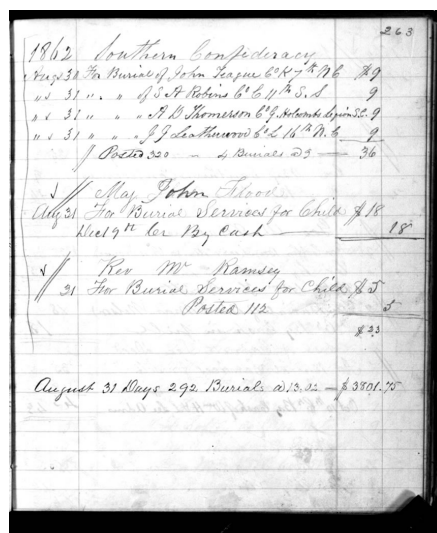 263
1862 Southern Confideracy
Augs 30 For Burial of John Teague Co K 7th N C $ 9
" s 31 " . " of S A Robins Co C 11th S. S 9
" s 31 " " " A D Thomerson Co G. Holcombs Legion S.C. 9
" s 31 " " " J J Leatherwood Co L 16th N. C 9
// Posted 320 — 4 Burials @ 9 — 36
Maj John Flood
Aug 31 For Burial Services for Child $ 18
Dec 19th Cr By Cash 18
Rev Mr Ramsey
31 For Burial Services for Child $ 5
Posted 112 5
$ 23
August 31 Days 292 Burials @ 13.02 — $ 3801.75